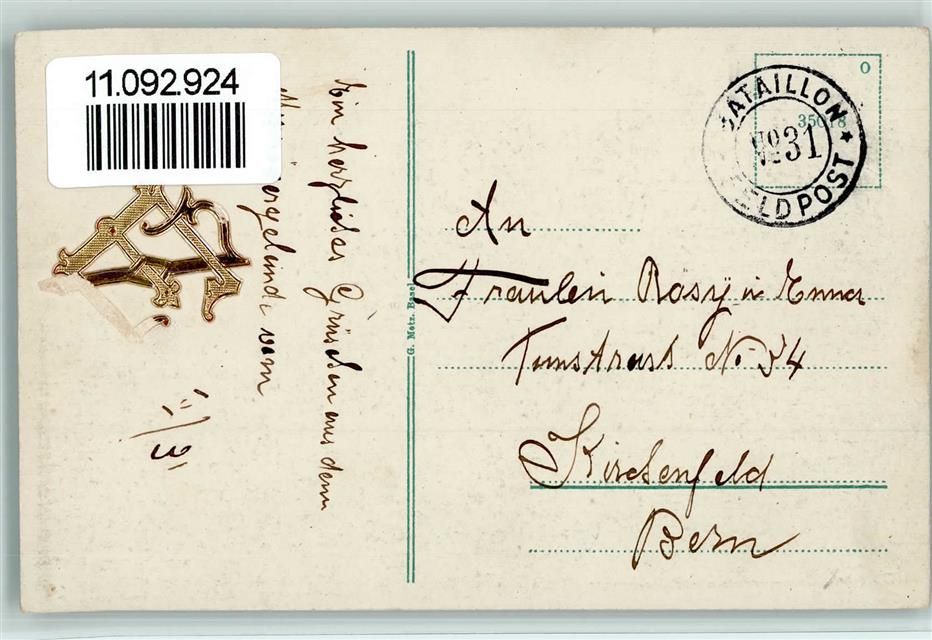 11.092.924
Ein herzliches Grüschen aus dem
vom
G. Metz, Basel
BATAILLON
No 31
FELDPOST
35018
An
Fräulein Rosÿ u Emma
Tunstrass No 54
Kirchenfeld
Bern